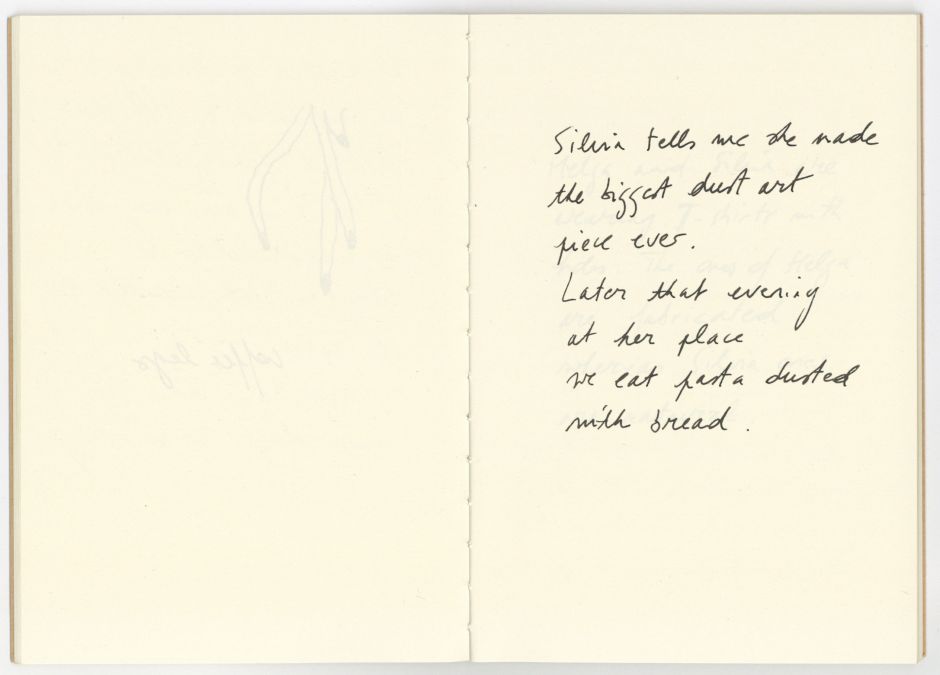 Silvia tells me she made
the biggest dust art
piece ever.
Later that evening
at her place
we eat pasta dusted
with bread.